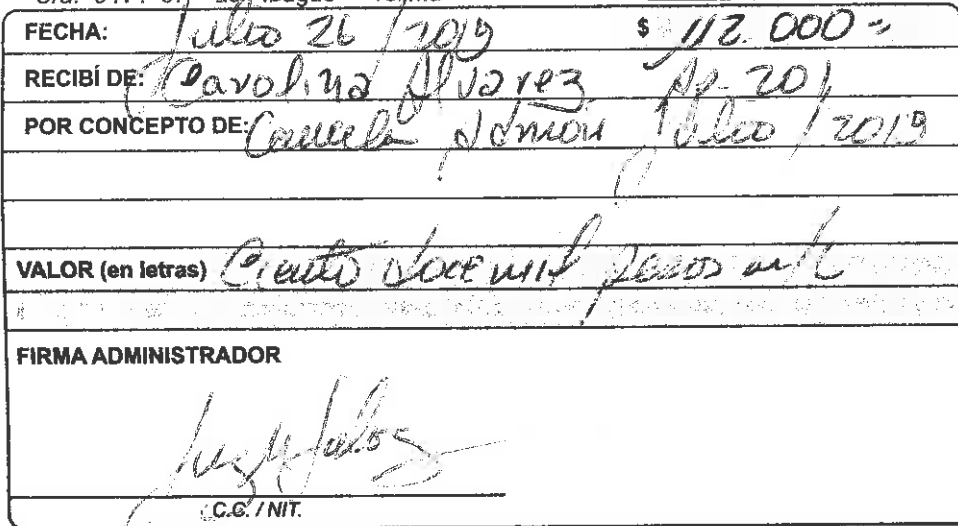 FECHA: Julio 26 / 2019 $ 112.000=
RECIBÍ DE: Carolina Alvarez Ap. 201
POR CONCEPTO DE: Cancela Admón Julio / 2019
VALOR (en letras) Ciento doce mil pesos m/c
FIRMA ADMINISTRADOR
C.C. / NIT.